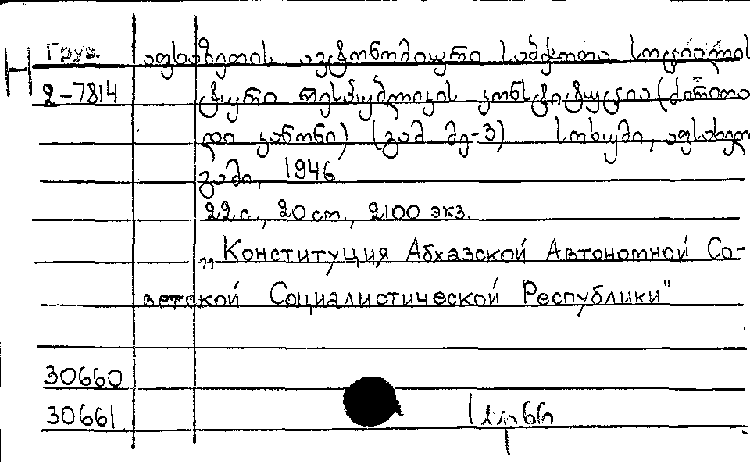 Н Груз. აფხაზეთის ავტონომიური საბჭოთა სოციალის
2-7814 ტური რესპუბლიკის კონსტიტუცია (ძირითა
დი კანონი) (გამ. მე-3) სოხუმი, აფსახელ
გამი, 1946
22 с., 20 ст., 2100 экз.
„Конституция Абхазской Автономной Со-
ветской Социалистической Республики"
30660
30661